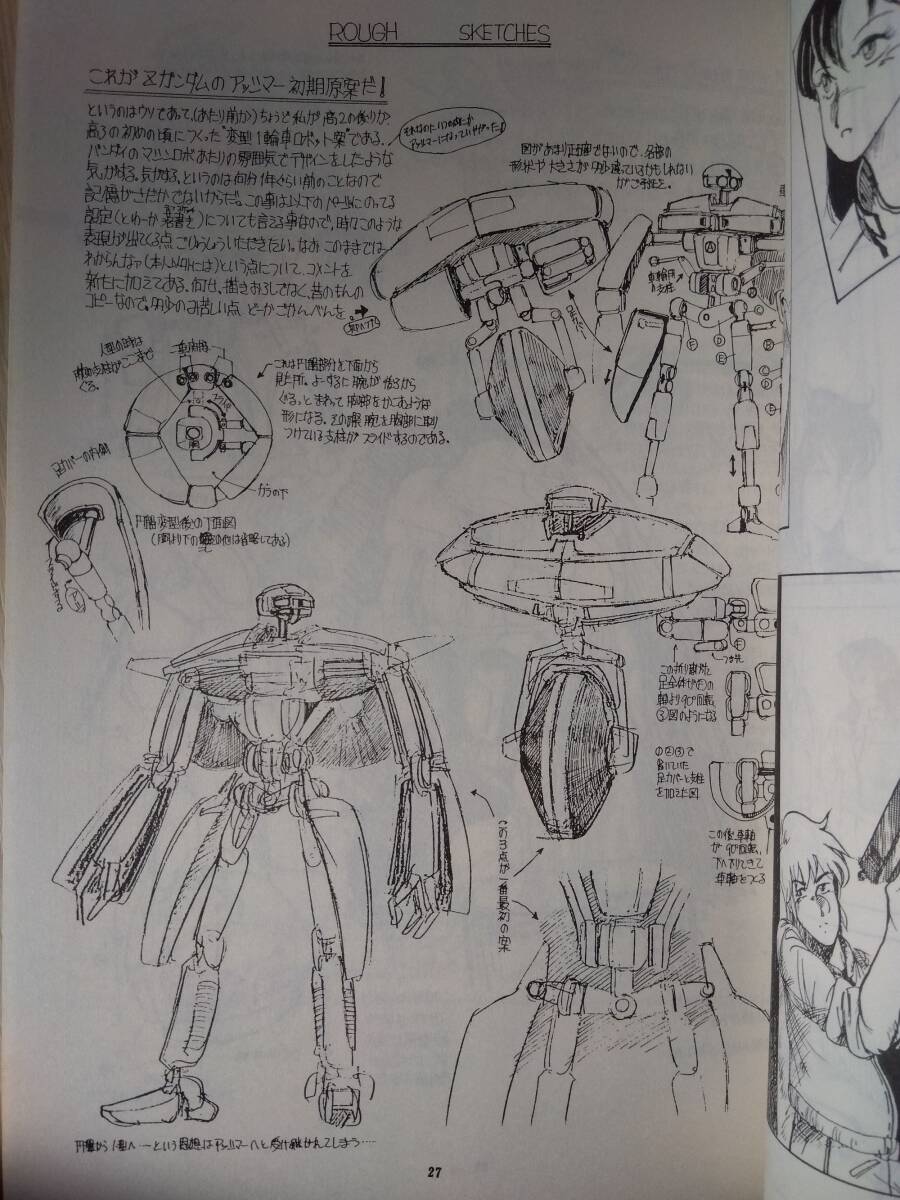 ROUGH SKETCHES
これが Zガンダムの アッシマー 初期原案だ!
というのはウソであって、(あたり前か)ちょうど私が高2の後りか、
高3の初めの頃につくった“変型1輪車ロボット案”である。
バンダイのマシンロボあたりの雰囲気でデザインをしたような
気がする。気がする、というのは何分1年ぐらい前のことなので
記憶がさだかでないからだ。この事は以下のページにのってる
設定(とゆーか落書き)についても言える事なので、時々このような
表現が出てくる点、ごりょうしょういただきたい。なお このままでは
わからんなァ(本人以外には)という点について、コメントを
新たに加えてある。何せ、描きおろしでなく、昔のもんの
コピーなので、多少のお苦しい点 どーかごかんべんを
それなのにいつの間にか
アッシマーになっていやがった!
図があまり正確でないので、各部の
形状や大きさが多少違っているかもしれない
がご承知を。
人型の時は
ここまで
くる。
これは円盤部分を下面から
見た所。よーするに腕が後ろから
ぐるっとまわって胸部をかこむような
形になる。その際腕を胸部に取り
つけている支柱がスライドするのである。
足カバーの内側
円盤変型後の下面図
(胴より下の他は省略してある)
つま先
足全体が
軸より90°回転
③図のようになる
①②③で
省いていた
足カバーと支柱
を加えた図
この後、車軸
が90°回転、
下へ下りてきて
車軸をつくる
この3点が一番最初の案
円盤から人型へ ―という思想はアッシマーへと受け継がれてしまう……
27